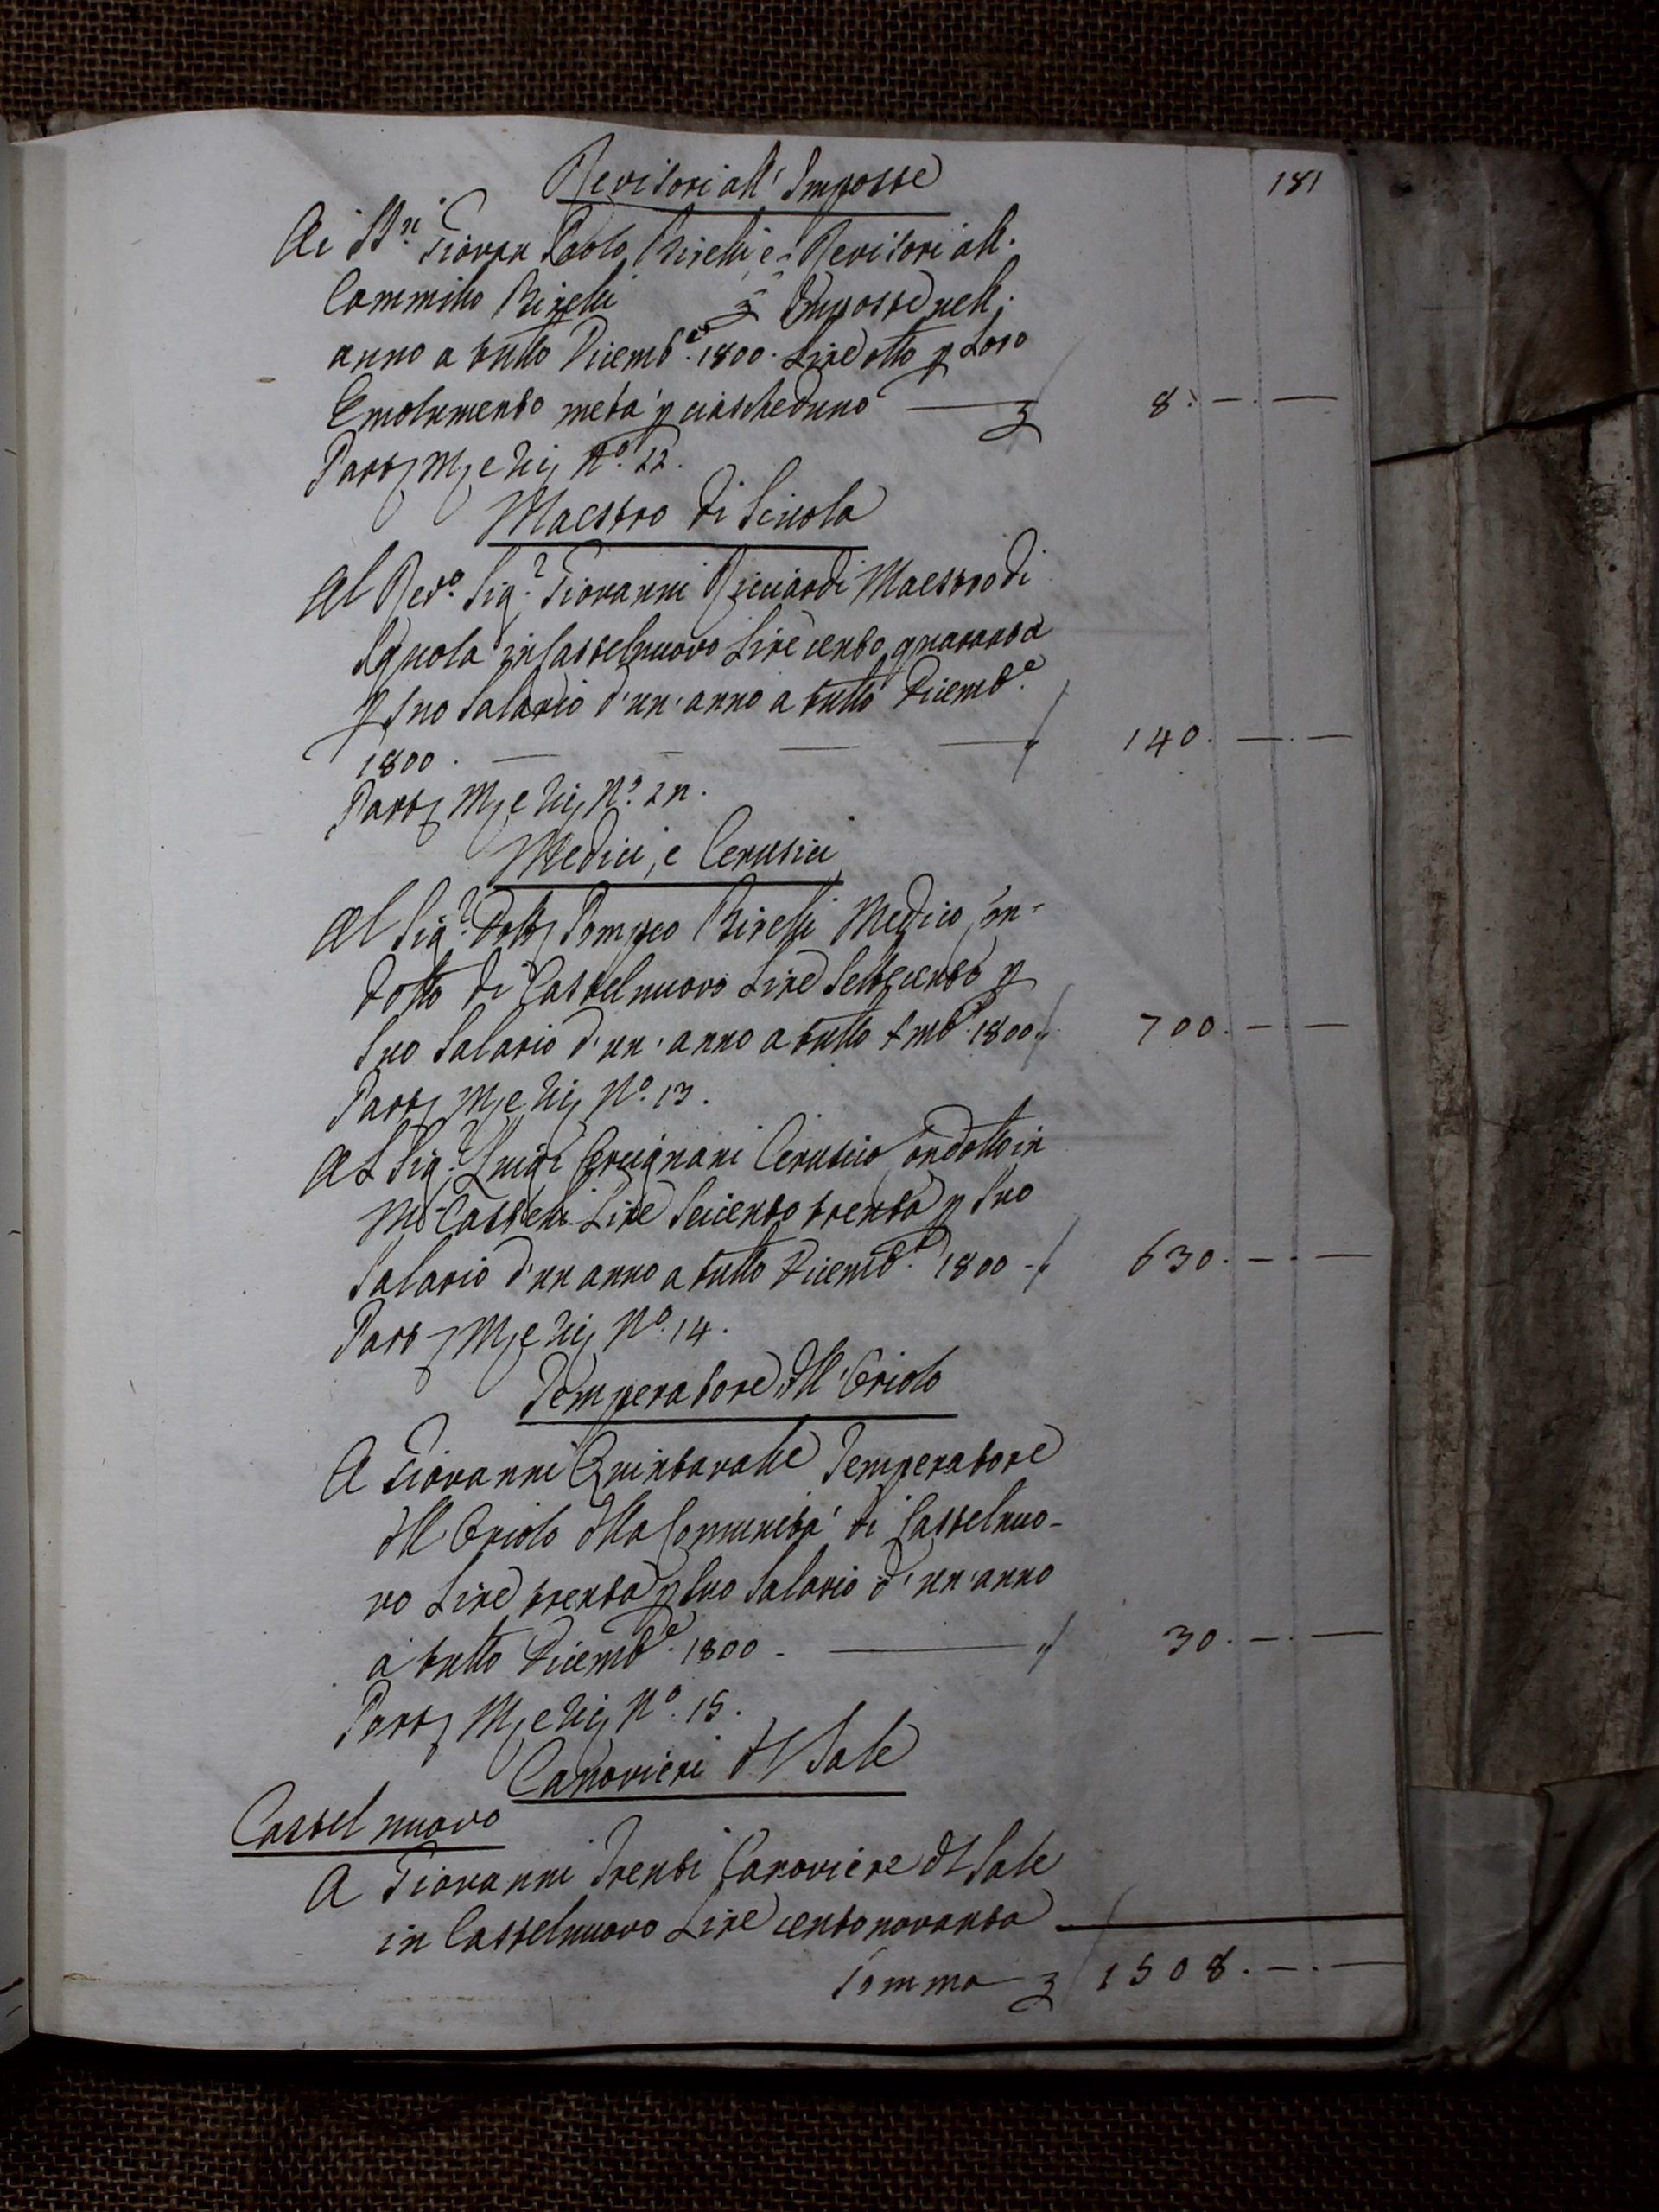 181
Revisori all' Imposte
Ai SS.ri Giovan Paolo Birelli e Revisori all'
Cammillo Birelli Imposte nell'
anno a tutto Dicemb.e 1800. Lire otto p Loro
Emolumento metà p ciascheduno — 8. — . —
Part M e Uij N.o 22.
Maestro di Scuola
Al Rev.o Sig.r Giovanni Ricciardi Maestro di
Squola in Castelnuovo Lire cento quaranta
p suo Salario d'un'anno a tutto Dicemb.e
1800. — — — — 140. — . —
Part M e Uij N.o 21.
Medici, e Cerusici
Al Sig.r Dott Pompeo Birelli Medico con-
dotto di Castelnuovo Lire Settecento p
suo Salario d'un'anno a tutto Xmb.e 1800 700. — . —
Part M e Uij N.o 13.
Al Sig.r Luigi Cercignani Cerusico condotto in
M. Castelli Lire Seicento trenta p suo
Salario d'un anno a tutto Dicemb.e 1800 - 630. — . —
Part M e Uij N.o 14.
Temperatore dell'Oriolo
A Giovanni Quintavalle Temperatore
dell Oriolo della Comunità di Castelnuo-
vo Lire trenta p suo Salario d'un'anno
a tutto Dicemb.e 1800 - — 30. — . —
Part M e Uij N.o 15.
Canovieri del Sale
Castel nuovo
A Giovanni Trenti Canoviere del Sale
in Castelnuovo Lire cento novanta
Somma 1508. — . —